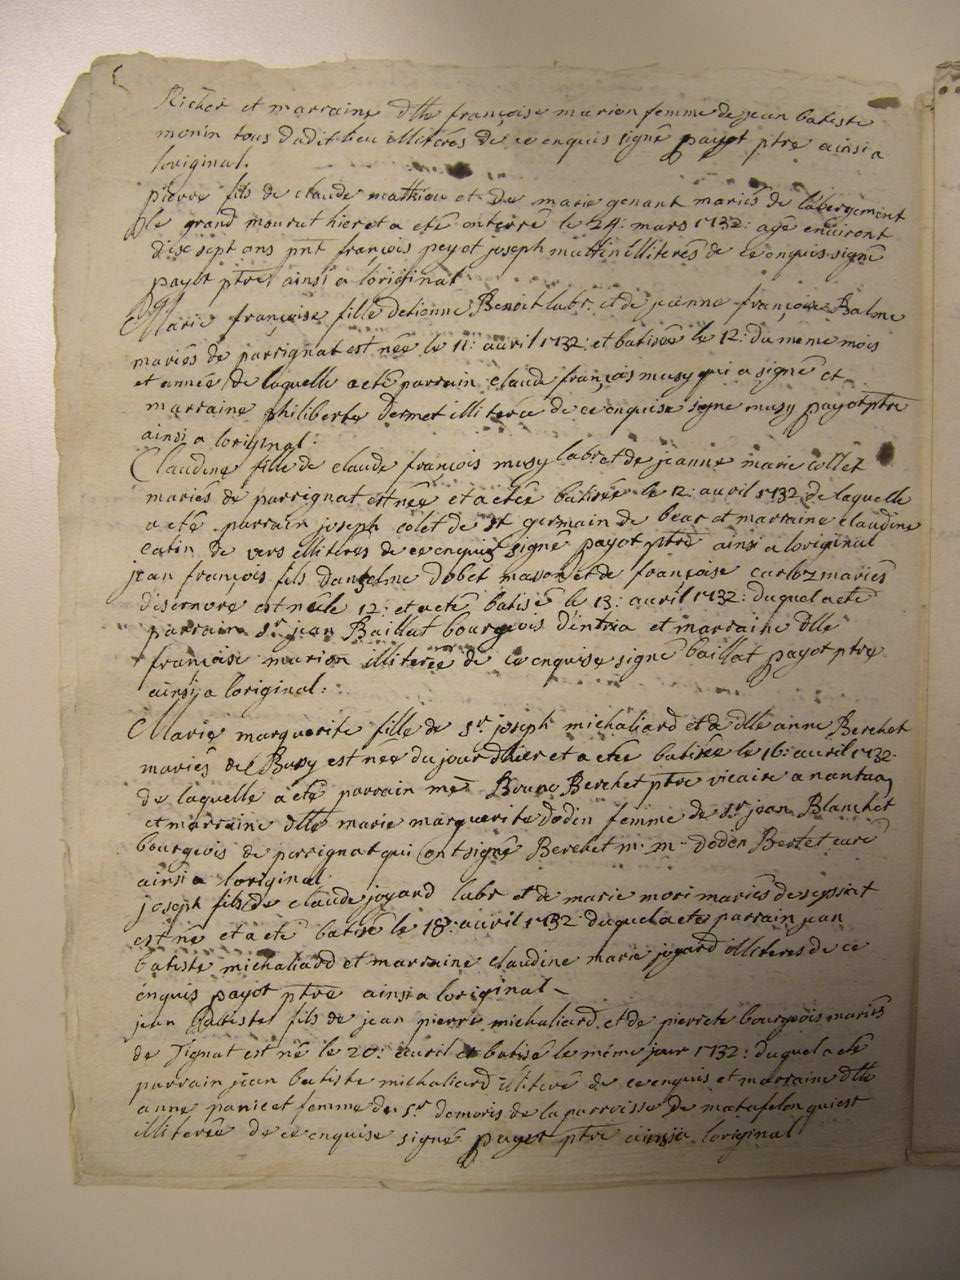 Richer et marraine dlle françoise marion femme de jean batiste
monin tous dudit lieu illiterés de ce enquis signé payot ptre ainsi a
loriginal.
pierre fils de claude mathieu et de marie genant mariés de labergement
le grand mourut hier et a eté enterré le 24: mars 1732: agé environt
dise sept ans pnt françois peyot joseph mattin illiterés de ce enquis signé
payot ptre ainsi a loriginal
Marie françoise fille detienne Benoit labr. et de jeanne françoise Balme
mariés de parrignat est née le 11: avril 1732: et batisée le 12: du même mois
et année, de laquelle a eté parrain claude françois musy qui a signé et
marraine philiberte dermet illiterée de ce enquise signé musy payot ptre
ainsi a loriginal:
Claudine fille de claude françois musy labr et de jeanne marie collet
mariés de parrignat est née et a etée batisée le 12: avril 1732 de laquelle
a eté parrain joseph colet de st germain de bear et marraine claudine
catin de vers illiteres de ce enquis signé payot ptre ainsi a loriginal
jean françois fils danselme dobet masson et de françoise carloz mariés
disernore est né le 12: et a eté batisé le 13: avril 1732: duquel a eté
parrain sr. jean Baillat bourgeois dintria et marraine dlle
françoise marion illiterée de ce enquise signé baillat payot ptre
ainsi a loriginal:
Marie marguerite fille de sr. joseph michaliard et de dlle anne Berchet
mariés de Bussy est née du jour dhier et a etée batisée le 16: avril 1732
de laquelle a eté parrain mre Bruno Berchet ptre vicaire a nantua
et marraine dlle marie marguerite dodin femme de sr. jean Blanchet
bourgeois de perrignat qui ont signé Berchet m. m. dodon Bertet curé
ainsi a loriginal
joseph fils de claude joyard labr et de marie mori mariés de sepsiat
est né et a eté batisé le 18: avril 1732: duquel a eté parrain jean
batiste michaliard et marraine claudine marie joyard illiteres de ce
enquis payot ptre ainsi a loriginal
jean Batiste fils de jean pierre michaliard et de pierrete bourgeois mariés
de Tignat est né le 20: avril et batisé le même jour 1732: duquel a eté
parrain jean batiste michaliard illiteré de ce enquis et marraine dlle
anne panicet femme de sr. demoris de la parroisse de matafelon qui est
illiterée de ce enquise signé payot ptre ainsi a loriginal